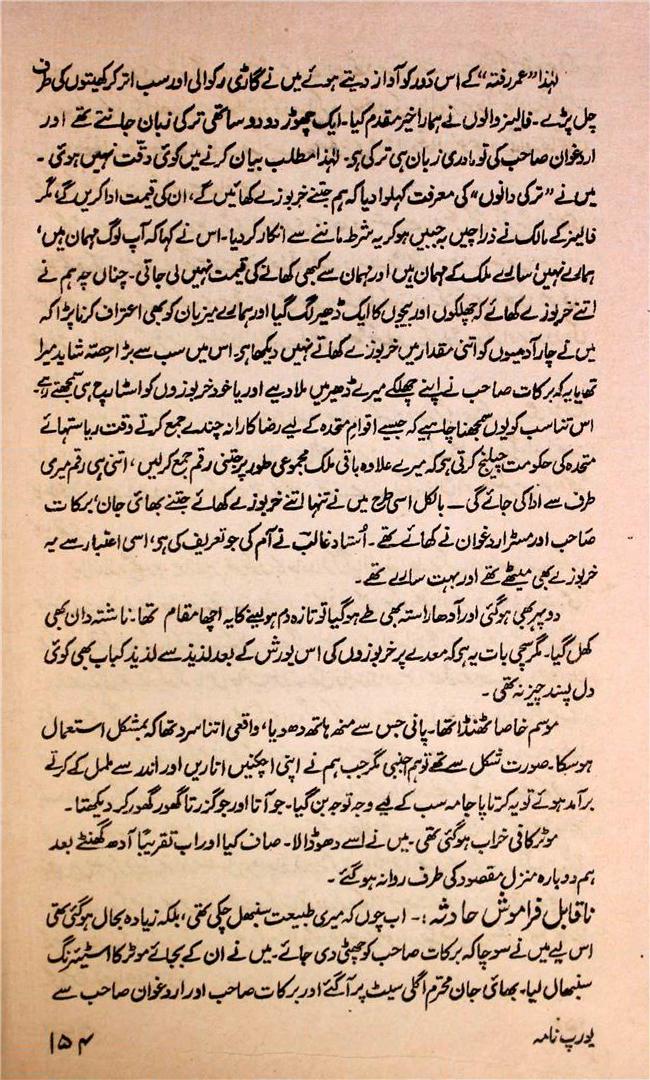 لہٰذا "عمر رفتہ" کے اس دَور کو آواز دیتے ہوئے میں نے گاڑی رکوالی اور سب اتر کر کھیتوں کی طرف
چل پڑے۔ فالیز والوں نے ہمارا خیر مقدم کیا۔ ایک چھوڑ دو دو ساتھی ترکی زبان جانتے تھے اور
اردغوان صاحب کی تو مادری زبان ہی ترکی ہو۔ لہٰذا مطلب بیان کرنے میں کوئی دقّت نہیں ہوئی۔
میں نے "ترکی دانوں" کی معرفت کہلوا دیا کہ ہم جتنے خربوزے کھائیں گے، ان کی قیمت ادا کریں گے، مگر
فالیز کے مالک نے ذرا چیں بہ جبیں ہو کر یہ شرط ماننے سے انکار کر دیا۔ اس نے کہا کہ آپ لوگ مہمان ہیں،
ہمارے نہیں، سارے ملک کے مہمان ہیں اور مہمان سے کبھی کھانے کی قیمت نہیں لی جاتی۔ چناں چہ ہم نے
اتنے خربوزے کھائے کہ چھلکوں اور بیجوں کا ایک ڈھیر لگ گیا اور ہمارے میزبان کو بھی اعتراف کرنا پڑا کہ
میں نے چار آدمیوں کو اتنی مقدار میں خربوزے کھاتے نہیں دیکھا ہو۔ اس میں سب سے بڑا حصّہ شاید میرا
تھا یا یہ کہ برکات صاحب نے اپنے چھلکے میرے ڈھیر میں ملا دیے اور یا خود خربوزوں کو اسٹارچ ہی سمجھتے رہے۔
اس تناسب کو یوں سمجھنا چاہیے کہ جیسے اقوامِ متحدہ کے لیے رضا کارانہ چندے جمع کرتے وقت ریاستہائے
متحدہ کی حکومت چیلنج کرتی ہو کہ میرے علاوہ باقی ملک مجموعی طور پر جتنی رقم جمع کر لیں، اتنی ہی رقم میری
طرف سے ادا کی جائے گی — بالکل اسی طرح میں نے تنہا اتنے خربوزے کھائے جتنے بھائی جان، برکات
صاحب اور مسٹر اردغوان نے کھائے تھے۔ اُستاد غالبؔ نے آم کی جو تعریف کی ہو، اسی اعتبار سے یہ
خربوزے بھی میٹھے تھے اور بہت سارے تھے۔
دوپہر بھی ہو گئی اور آدھا راستہ بھی طے ہو گیا تو تازہ دم ہو لینے کا یہ اچھا مقام تھا۔ ناشتہ دان بھی
کھل گیا۔ مگر سچی بات یہ ہو کہ معدے پر خربوزوں کی اس یورش کے بعد لذیذ سے لذیذ کباب بھی کوئی
دل پسند چیز نہ تھی۔
موسم خاصا ٹھنڈا تھا۔ پانی جس سے منھ ہاتھ دھویا، واقعی اتنا سرد تھا کہ بمشکل استعمال
ہو سکا۔ صورت شکل سے تھے تو ہم اجنبی مگر جب ہم نے اپنی اچکنیں اتاریں اور اندر سے ململ کے کرتے
برآمد ہوئے تو یہ کرتا پاجامہ سب کے لیے وجہ توجہ بن گیا۔ جو آتا اور جو گزرتا گھور گھور کر دیکھتا۔
موٹر کافی خراب ہو گئی تھی۔ میں نے اسے دھو ڈالا۔ صاف کیا اور اب تقریباً آدھ گھنٹے بعد
ہم دوبارہ منزلِ مقصود کی طرف روانہ ہو گئے۔
ناقابلِ فراموش حادثہ :۔ اب چوں کہ میری طبیعت سنبھل چکی تھی، بلکہ زیادہ بحال ہو گئی تھی
اس لیے میں نے سوچا کہ برکات صاحب کو چھٹی دی جائے۔ میں نے ان کے بجائے موٹر کا اسٹیئرنگ
سنبھال لیا۔ بھائی جان محترم اگلی سیٹ پر آ گئے اور برکات صاحب اور اردغوان صاحب سے
یورپ نامہ
۱۵۴